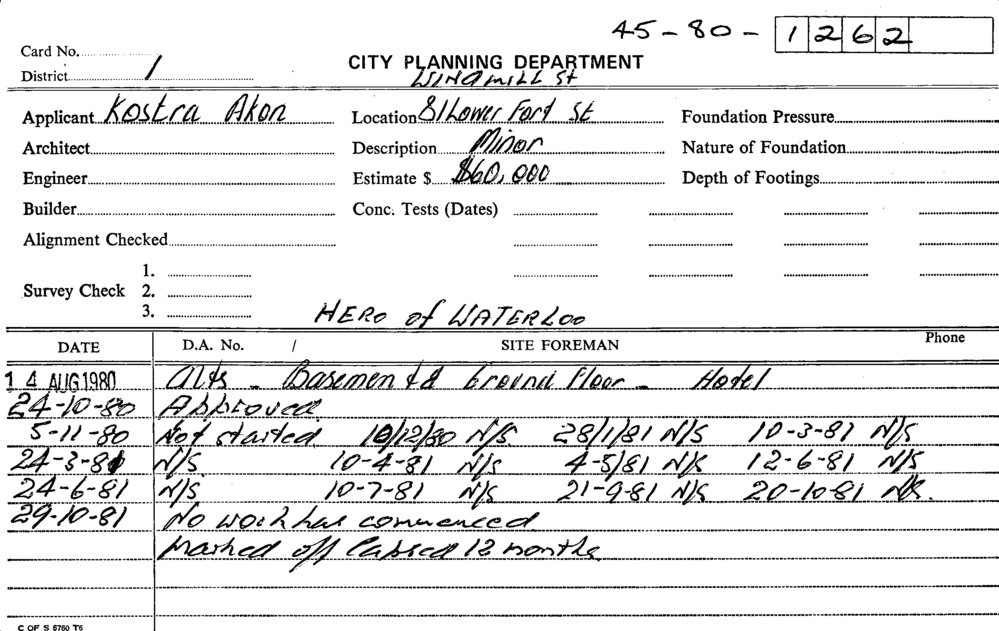 45-80-1262
Card No.
CITY PLANNING DEPARTMENT
District 1
WINDMILL St
Applicant Kostra Akon Location 81 Lower Fort St Foundation Pressure
Architect Description Minor Nature of Foundation
Engineer Estimate $ $60,000 Depth of Footings
Builder Conc. Tests (Dates)
Alignment Checked
1.
Survey Check 2.
3.
HERO of WATERLOO
DATE D.A. No. / SITE FOREMAN Phone
14 AUG 1980 Alts - Basement & Ground Floor - Hotel
24-10-80 Approved
5-11-80 Not started 10/12/80 N/S 28/1/81 N/S 10-3-81 N/S
24-3-81 N/S 10-4-81 N/S 4-5/81 N/S 12-6-81 N/S
24-6-81 N/S 10-7-81 N/S 21-9-81 N/S 20-10-81 N/S.
29-10-81 No work has commenced
Marked off lapsed 12 months
C OF S 6760 T6